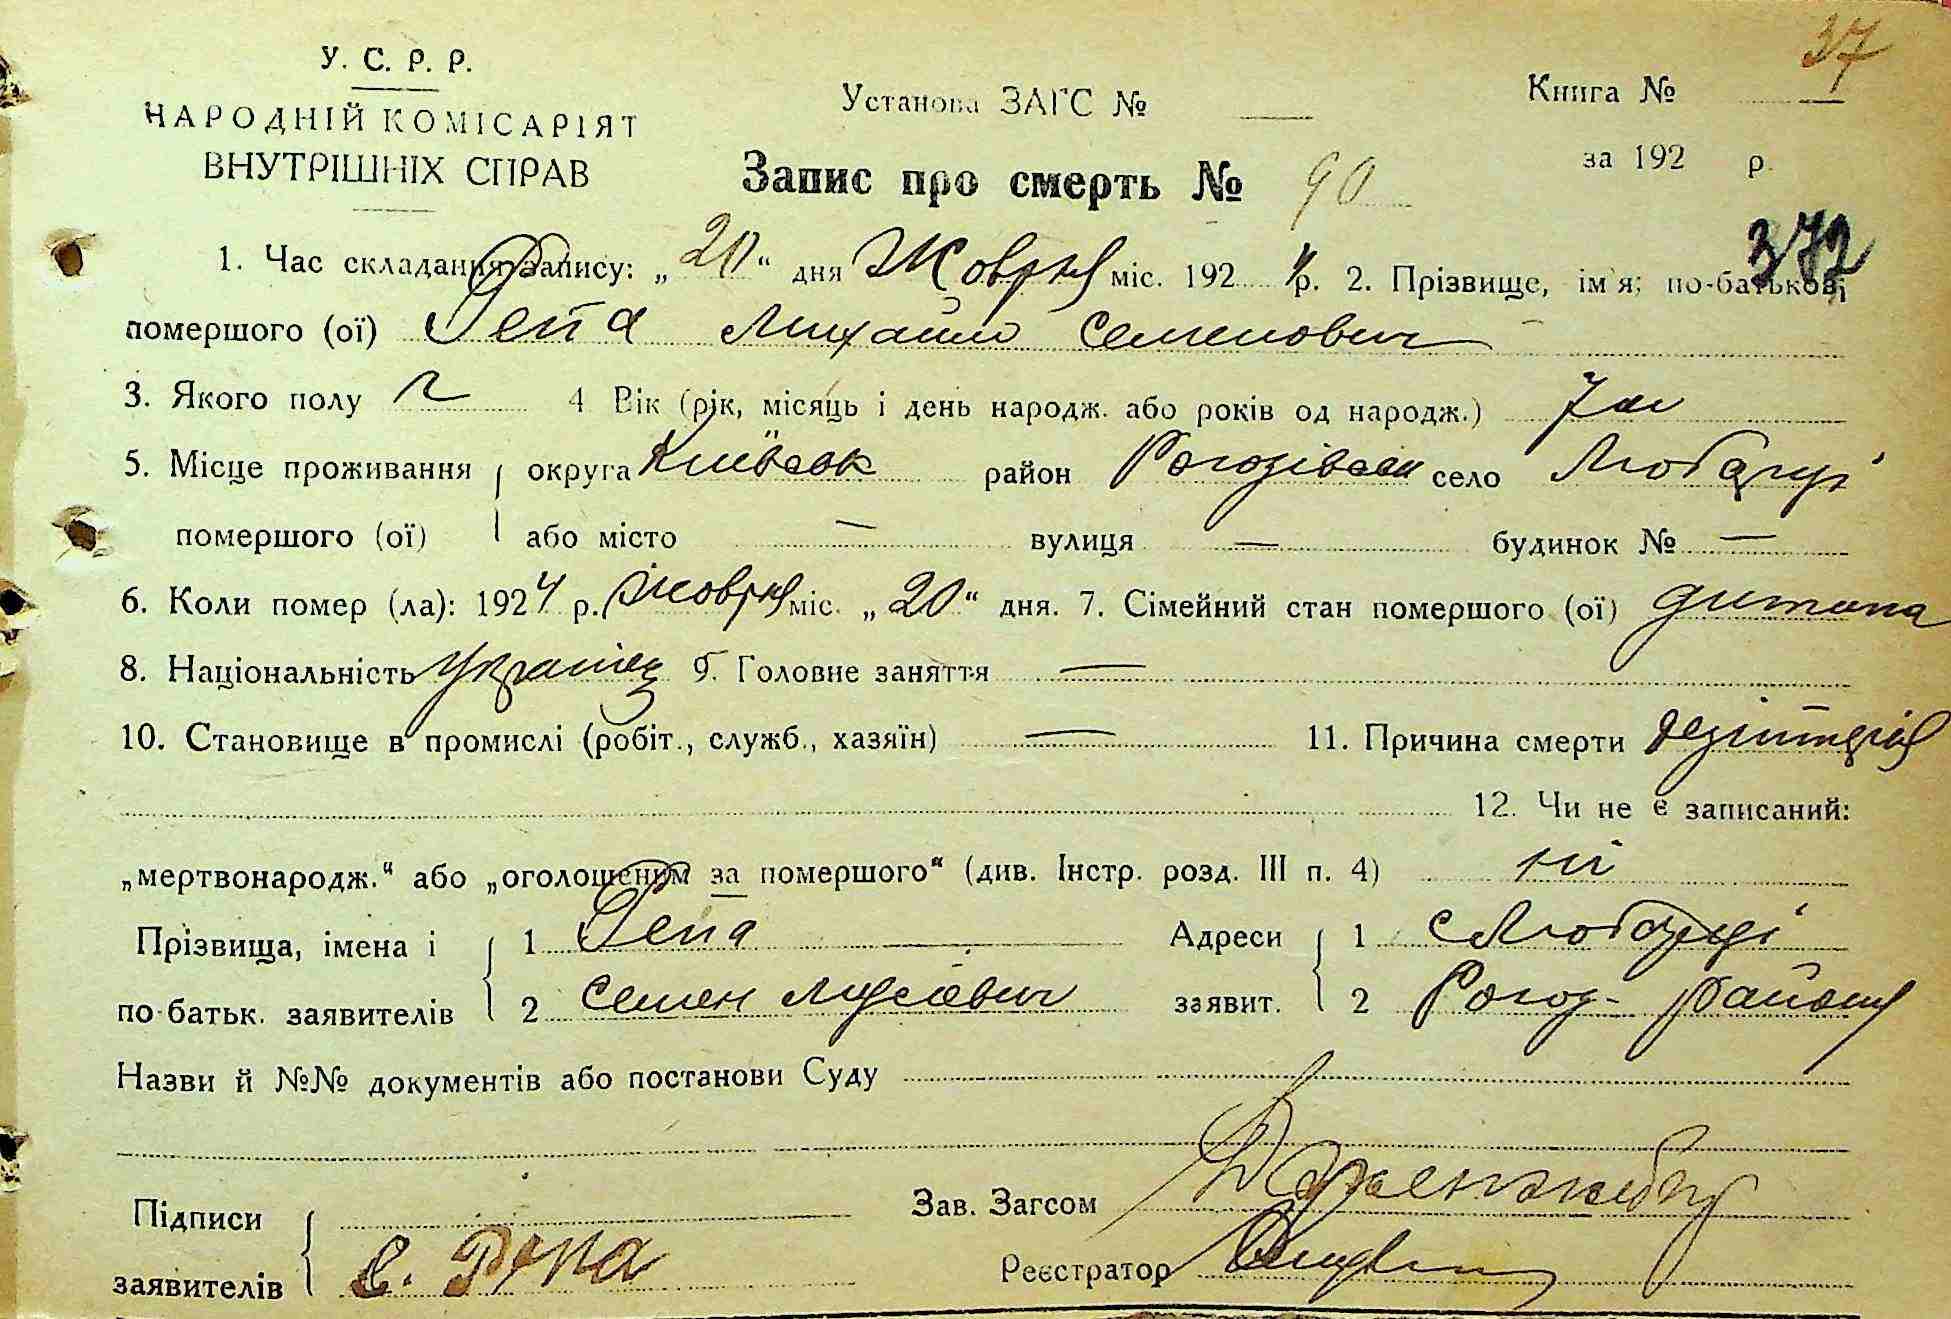 37
У. С. Р. Р.
НАРОДНІЙ КОМІСАРІЯТ
ВНУТРІШНІХ СПРАВ
Установа ЗАГС №
Книга №
за 192 р.
Запис про смерть № 90
372
1. Час складання запису: „20“ дня Жовтня міс. 1924 р. 2. Прізвище, ім'я; по-батькові
помершого (ої) Репа Михайло Семенович
3. Якого полу ч 4 Вік (рік, місяць і день народж. або років од народж.) 7
5. Місце проживання округа Київськ район Рогозівськ село Любарці
помершого (ої) або місто — вулиця — будинок № —
6. Коли помер (ла): 1924 р. Жовтня міс. „20“ дня. 7. Сімейний стан помершого (ої) дитина
8. Національність Українец 9. Головне заняття —
10. Становище в промислі (робіт., служб., хазяїн) — 11. Причина смерти
12. Чи не є записаний:
„мертвонародж.“ або „оголошеним за помершого“ (див. Інстр. розд. III п. 4) ні
Прізвища, імена і 1 Репа Адреси 1 с Любарці
по-батьк. заявителів 2 Семен Мусієвич заявит. 2 Рогоз- району
Назви й №№ документів або постанови Суду
Підписи
Зав. Загсом
заявителів С. Репа
Реєстратор